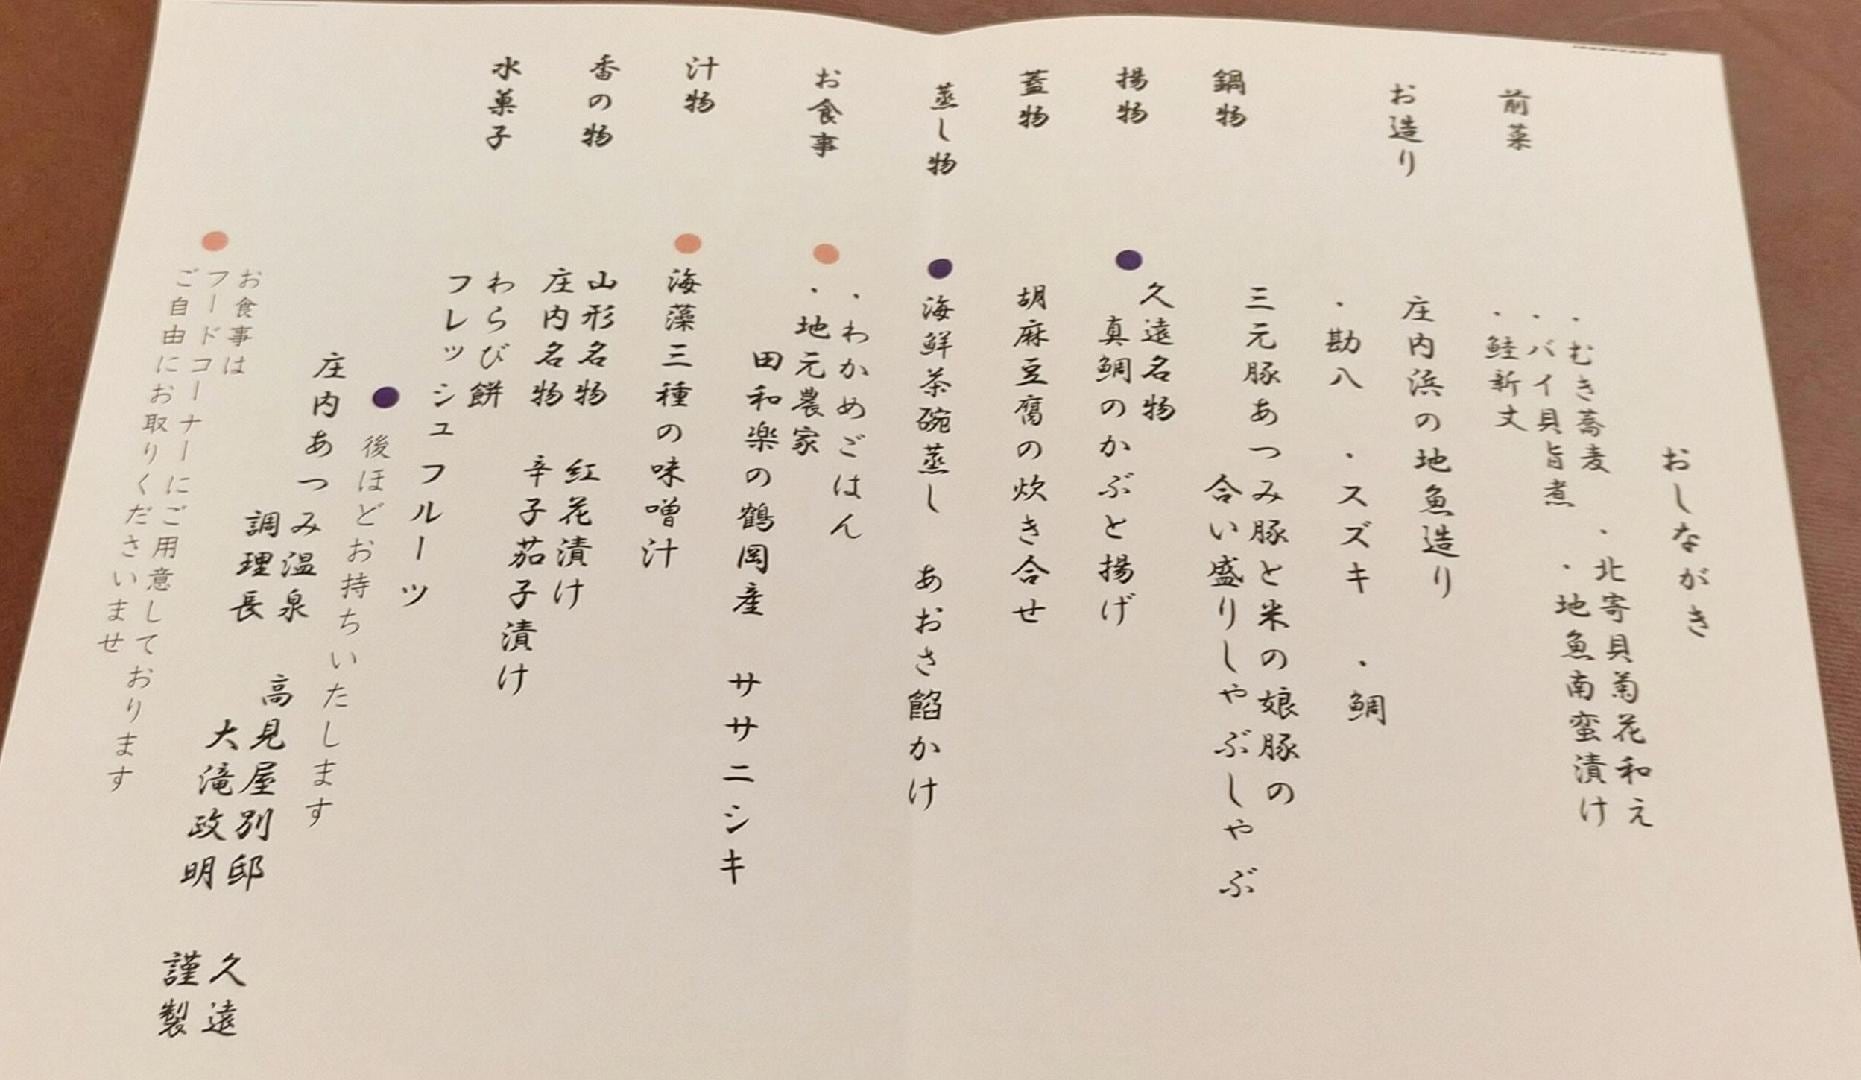 おしながき
前菜
・むき蕎麦　・北寄貝菊花和え
・バイ貝旨煮　・地魚南蛮漬け
・鮭新丈
お造り
庄内浜の地魚造り
・勘八　・スズキ　・鯛
鍋物
三元豚あつみ豚と米の娘豚の
合い盛りしゃぶしゃぶ
揚物
● 久遠名物
真鯛のかぶと揚げ
蓋物
胡麻豆腐の炊き合せ
蒸し物
● 海鮮茶碗蒸し　あおさ餡かけ
お食事
● ・わかめごはん
・地元農家
田和楽の鶴岡産　ササニシキ
汁物
● 海藻三種の味噌汁
香の物
山形名物　紅花漬け
庄内名物　辛子茄子漬け
水菓子
わらび餅
フレッシュフルーツ
● 後ほどお持ちいたします
庄内あつみ温泉　高見屋別邸　久遠
調理長　大滝政明　謹製
● お食事は
フードコーナーにご用意しております
ご自由にお取りくださいませ